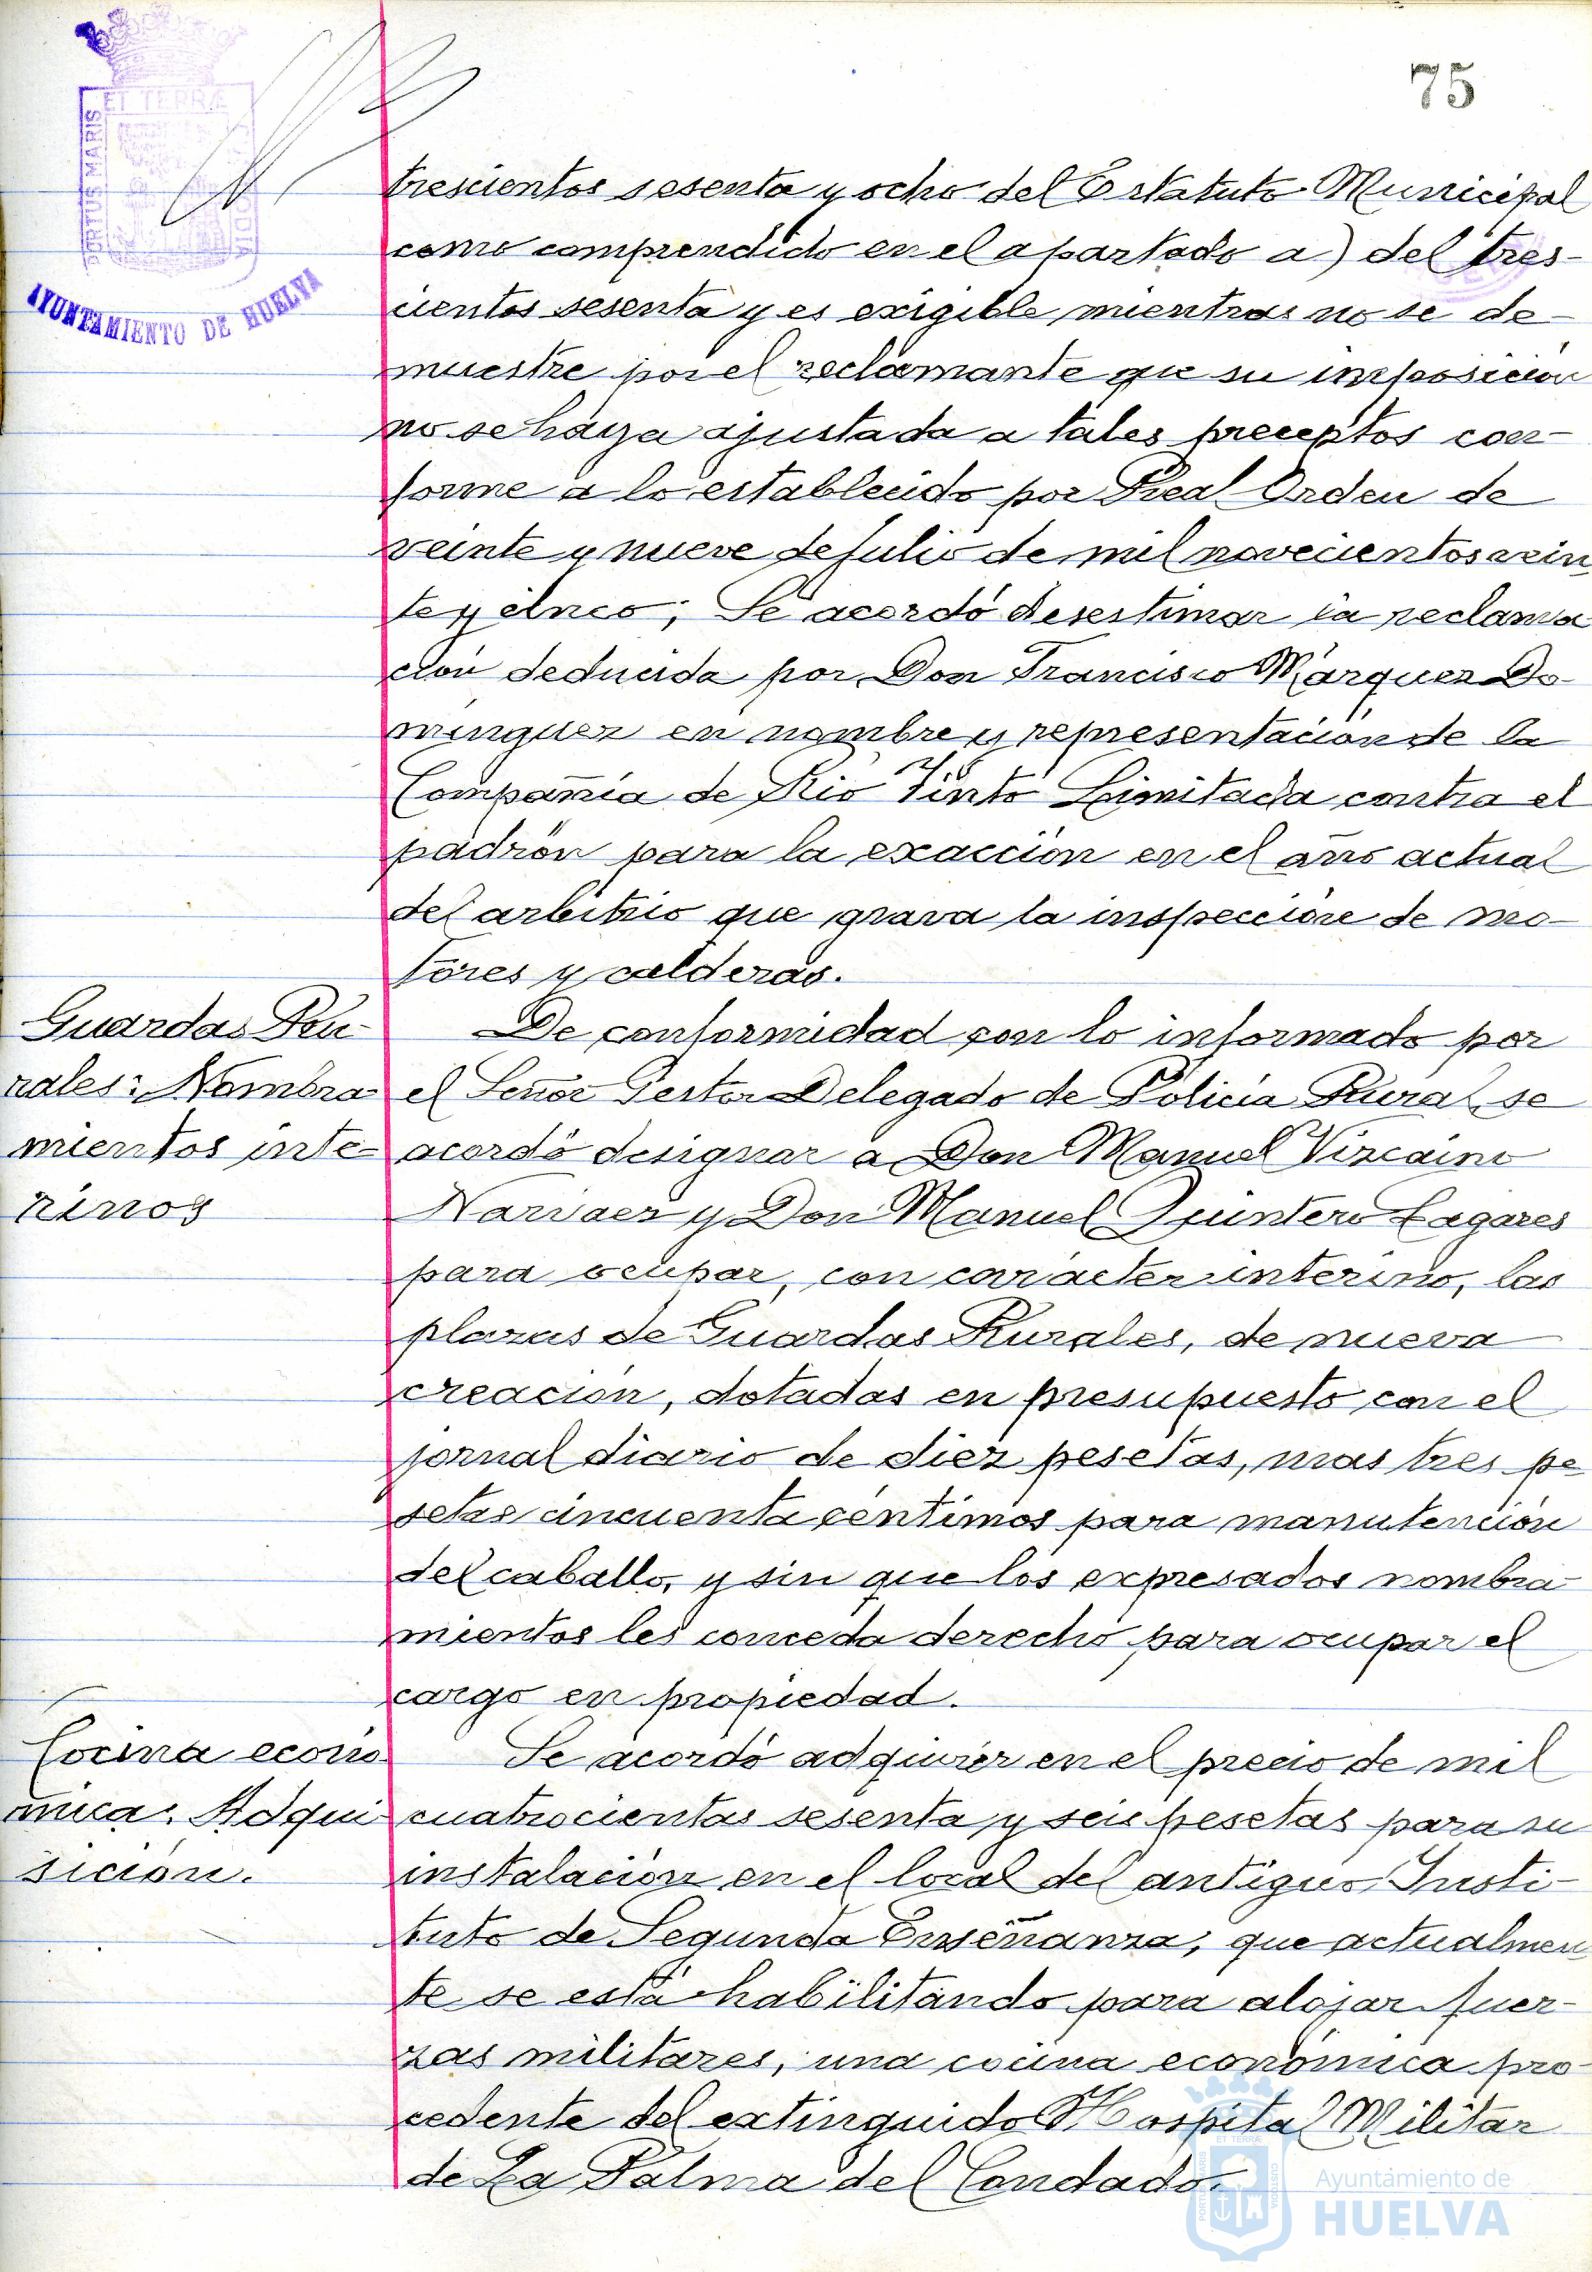 75
ET TERRÆ
PORTUS MARIS
CUSTODIA
AYUNTAMIENTO DE HUELVA
trescientos sesenta y ocho del Estatuto Municipal
como comprendido en el apartado a) del tres-
cientos sesenta y es exigible mientras no se de-
muestre por el reclamante que su imposición
no se haya ajustada a tales preceptos con-
forme a lo establecido por Real Orden de
veinte y nueve de Julio de mil novecientos vein
te y cinco; Se acordó desestimar la reclama
ción deducida por Don Francisco Márquez Do-
minguez en nombre y representación de la
Compañía de Rio Tinto Limitada contra el
padrón para la exacción en el año actual
del arbitrio que grava la inspección de mo-
tores y calderas.
Guardas Ru-
rales: Nombra-
mientos inte-
rinos
De conformidad con lo informado por
el Señor Gestor Delegado de Policía Rural, se
acordó designar a Don Manuel Vizcaino
Narvaez y Don Manuel Quintero Lagares
para ocupar, con carácter interino, las
plazas de Guardas Rurales, de nueva
creación, dotadas en presupuesto con el
jornal diario de diez pesetas, mas tres pe
setas cincuenta céntimos para manutención
del caballo, y sin que los expresados nombra-
mientos les conceda derecho para ocupar el
cargo en propiedad.
Cocina econó-
mica: Adqui
sición.
Se acordó adquirir en el precio de mil
cuatrocientas sesenta y seis pesetas para su
instalación en el local del antiguo Insti-
tuto de Segunda Enseñanza, que actualmen
te se está habilitando para alojar fuer-
zas militares, una cocina económica pro-
cedente del extinguido Hospital Militar
de La Palma del Condado.
Ayuntamiento de
HUELVA